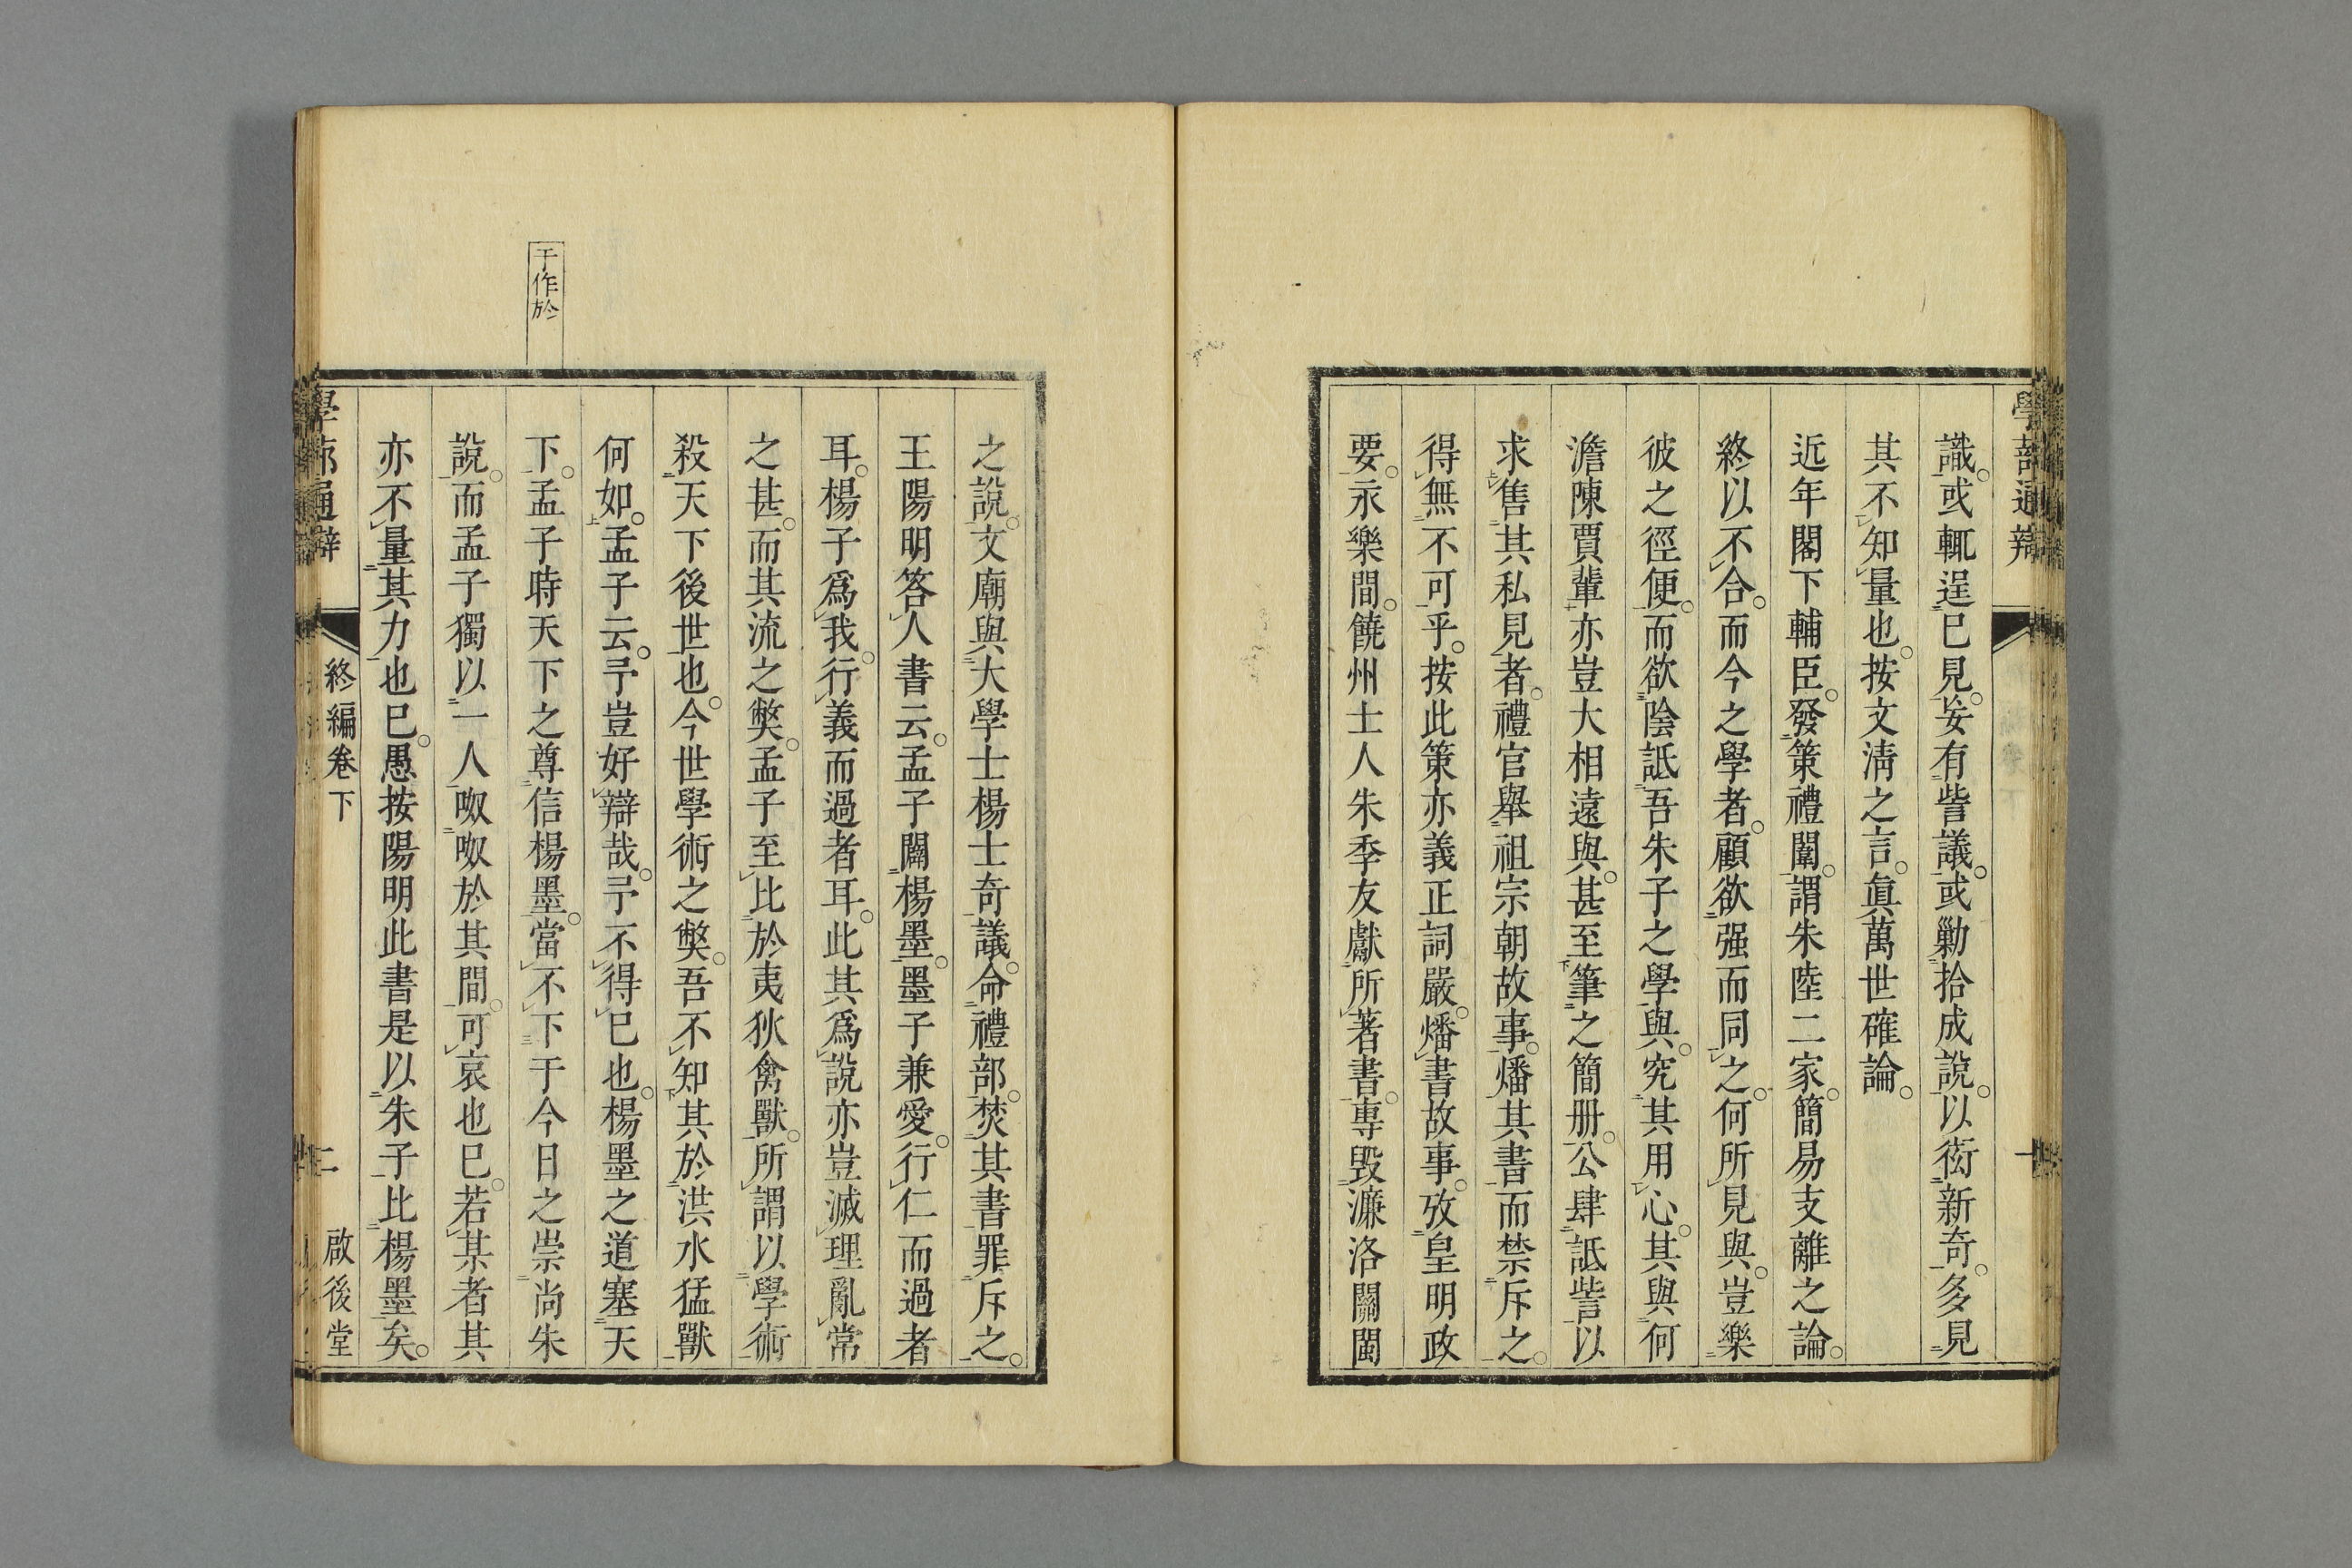 學蔀通辯
識。或輒逞已見。妄有訾議。或勦拾成說。以衒新奇。多見
其不知量也。按文淸之言。眞萬世確論。
近年閣下輔臣。發策禮闈。謂朱陸二家。簡易支離之論。
終以不合。而今之學者。顧欲强而同之。何所見與。豈樂
彼之徑便。而欲陰詆吾朱子之學與。究其用心。其與何
澹陳賈輩亦豈大相遠與。甚至筆之簡册。公肆詆訾以
求售其私見者。禮官舉祖宗朝故事。燔其書而禁斥之。
得無不可乎。按此策亦義正詞嚴。燔書故事。攷皇明政
要。永樂間。饒州士人朱季友獻所著書。專毀濂洛關閩
之說。文廟與大學士楊士奇議。命禮部。焚其書罪斥之。
王陽明答人書云。孟子闢楊墨。墨子兼愛。行仁而過者
耳。楊子爲我。行義而過者耳。此其爲說亦豈滅理亂常
之甚。而其流之獘。孟子至比於夷狄禽獸。所謂以學術
殺天下後世也。今世學術之獘。吾不知其於洪水猛獸
何如。孟子云。予豈好辯哉。予不得已也。楊墨之道塞天
下。孟子時天下之尊信楊墨。當不下于今日之崇尚朱
說。而孟子獨以一人呶呶於其間。可哀也已。若某者其
亦不量其力也已。愚按陽明此書是以朱子比楊墨矣。
于作於
學蔀通辯 終編卷下 二 啟後堂